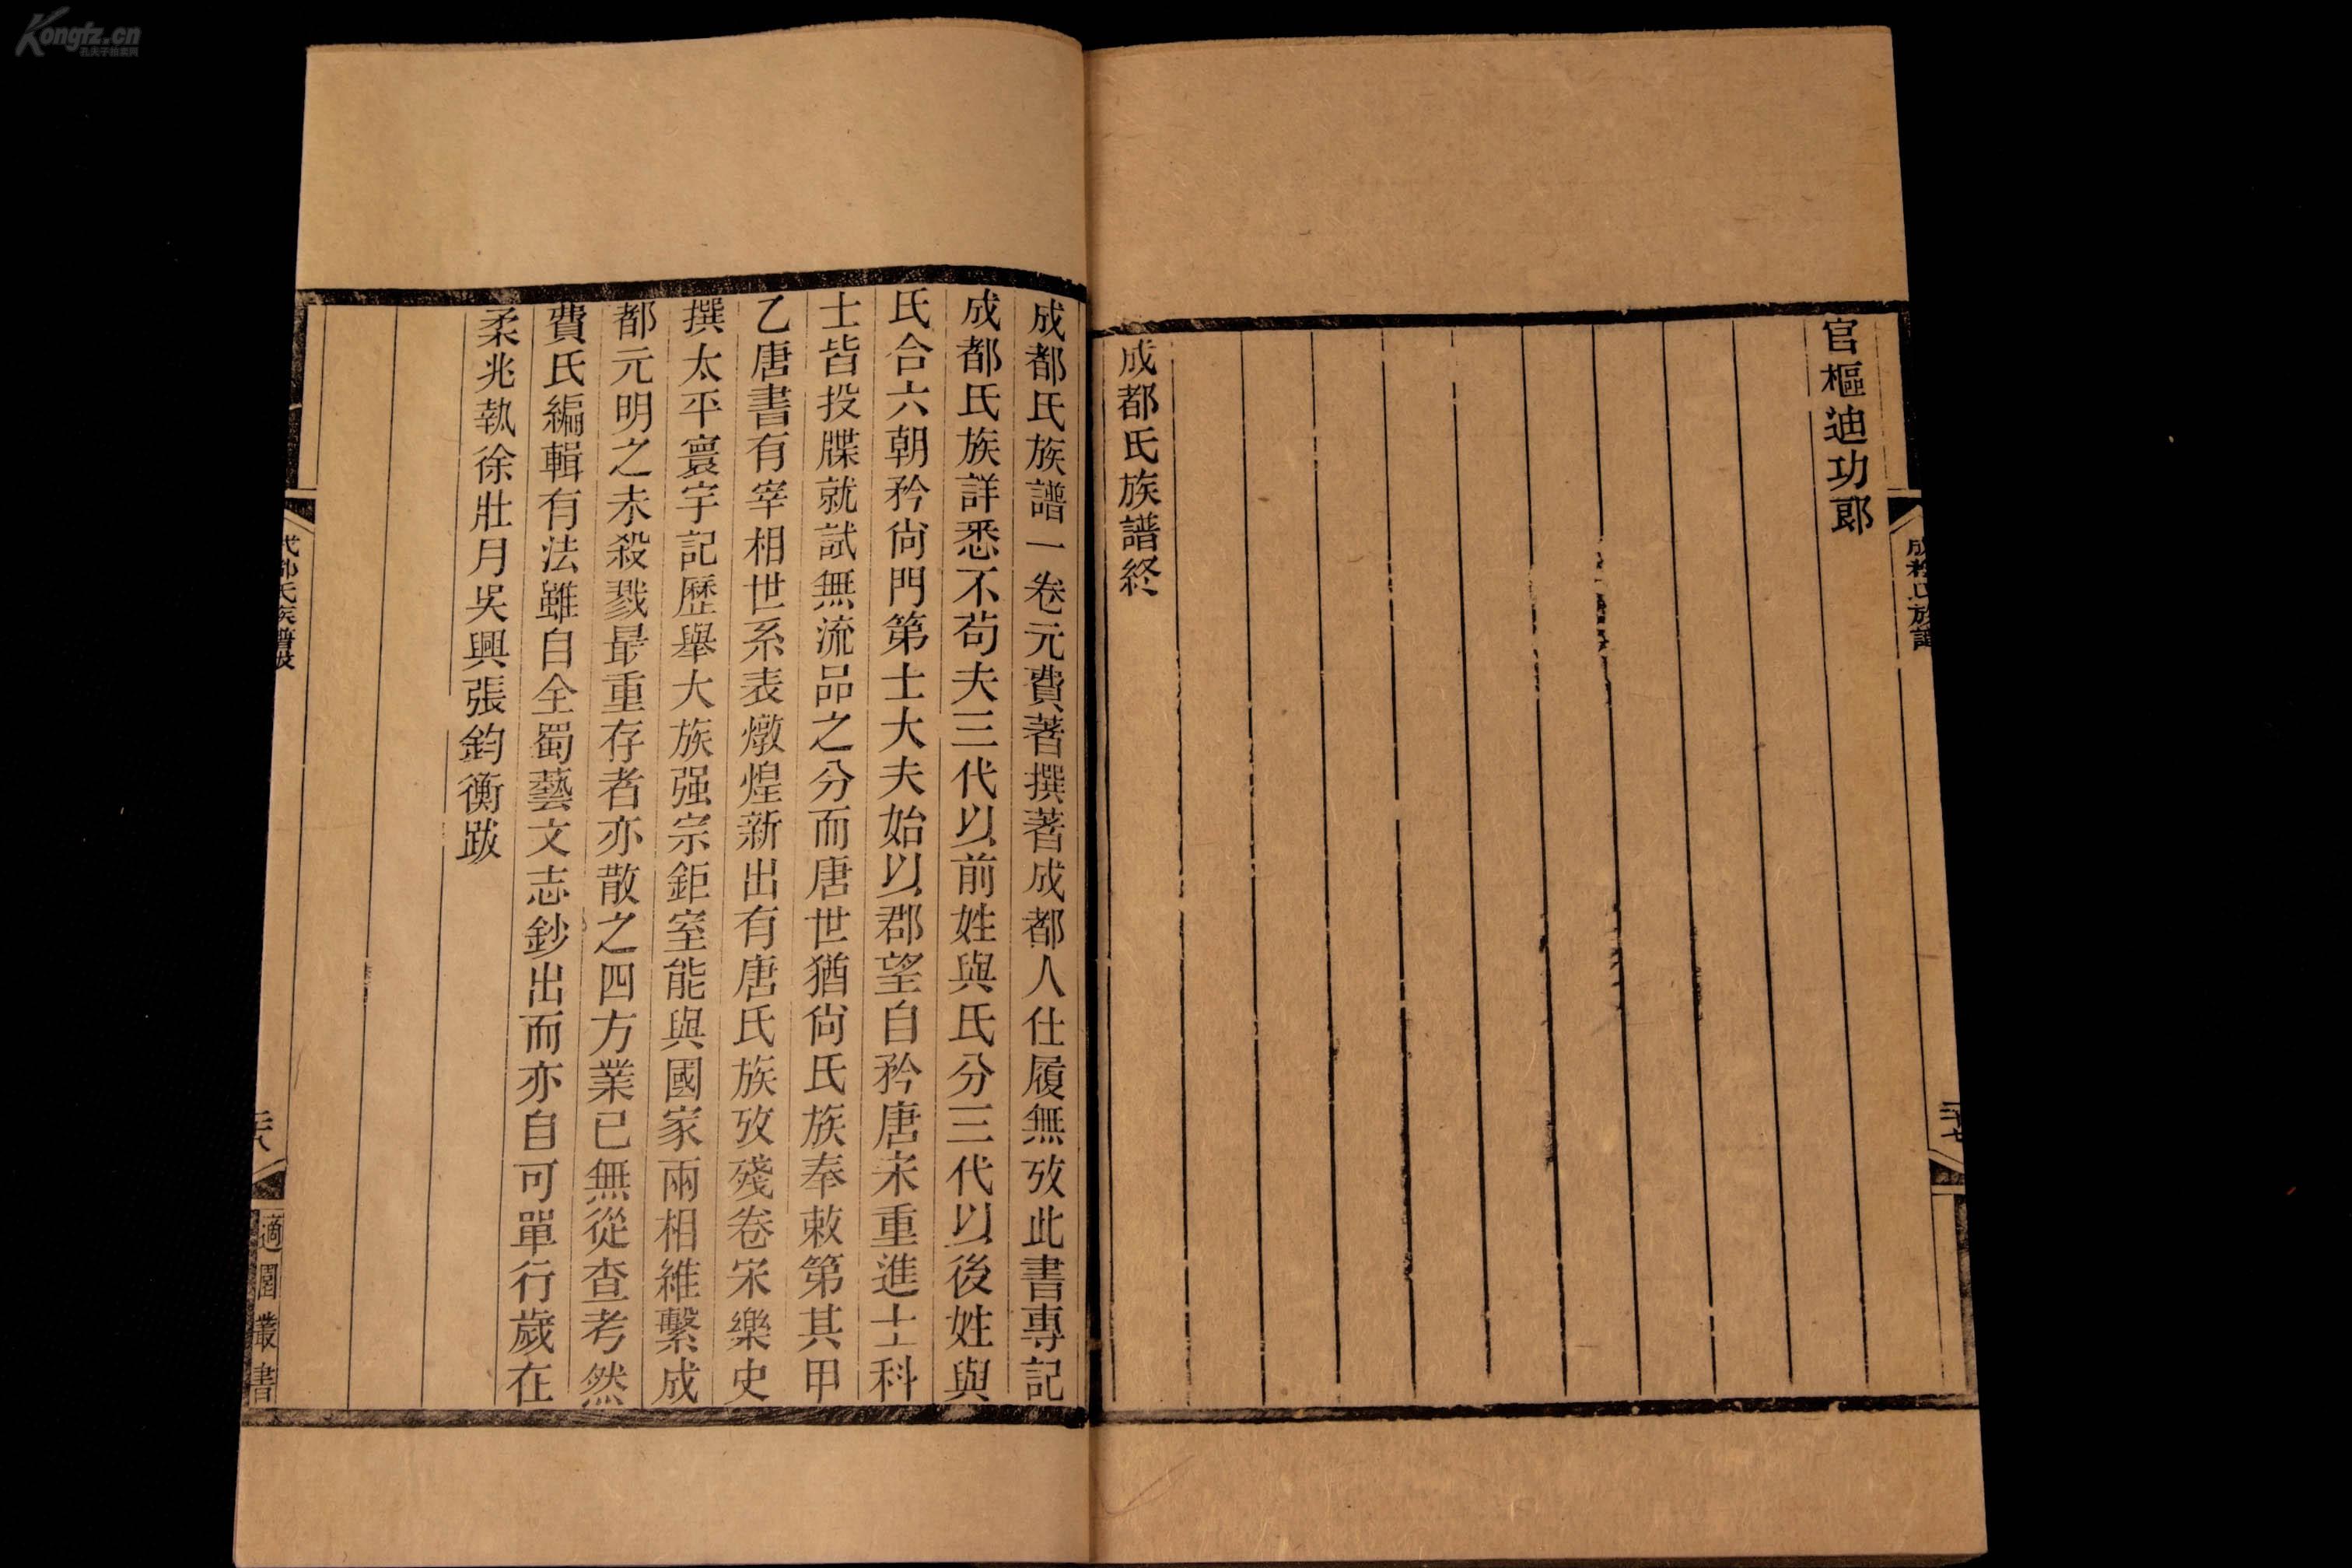 Kongfz.cn
孔夫子拍卖网
官樞迪功郎
成都氏族譜終
成都氏族譜
二十七
成都氏族譜一卷元費著撰著成都人仕履無攷此書專記
成都氏族詳悉不苟夫三代以前姓與氏分三代以後姓與
氏合六朝矜尙門第士大夫始以郡望自矜唐宋重進士科
士皆投牒就試無流品之分而唐世猶尙氏族奉敕第其甲
乙唐書有宰相世系表燉煌新出有唐氏族攷殘卷宋樂史
撰太平寰宇記歷舉大族强宗鉅室能與國家兩相維繫成
都元明之末殺戮最重存者亦散之四方業已無從查考然
費氏編輯有法雖自全蜀藝文志鈔出而亦自可單行歲在
柔兆執徐壯月吳興張鈞衡跋
成都氏族譜跋
二十八
適園叢書